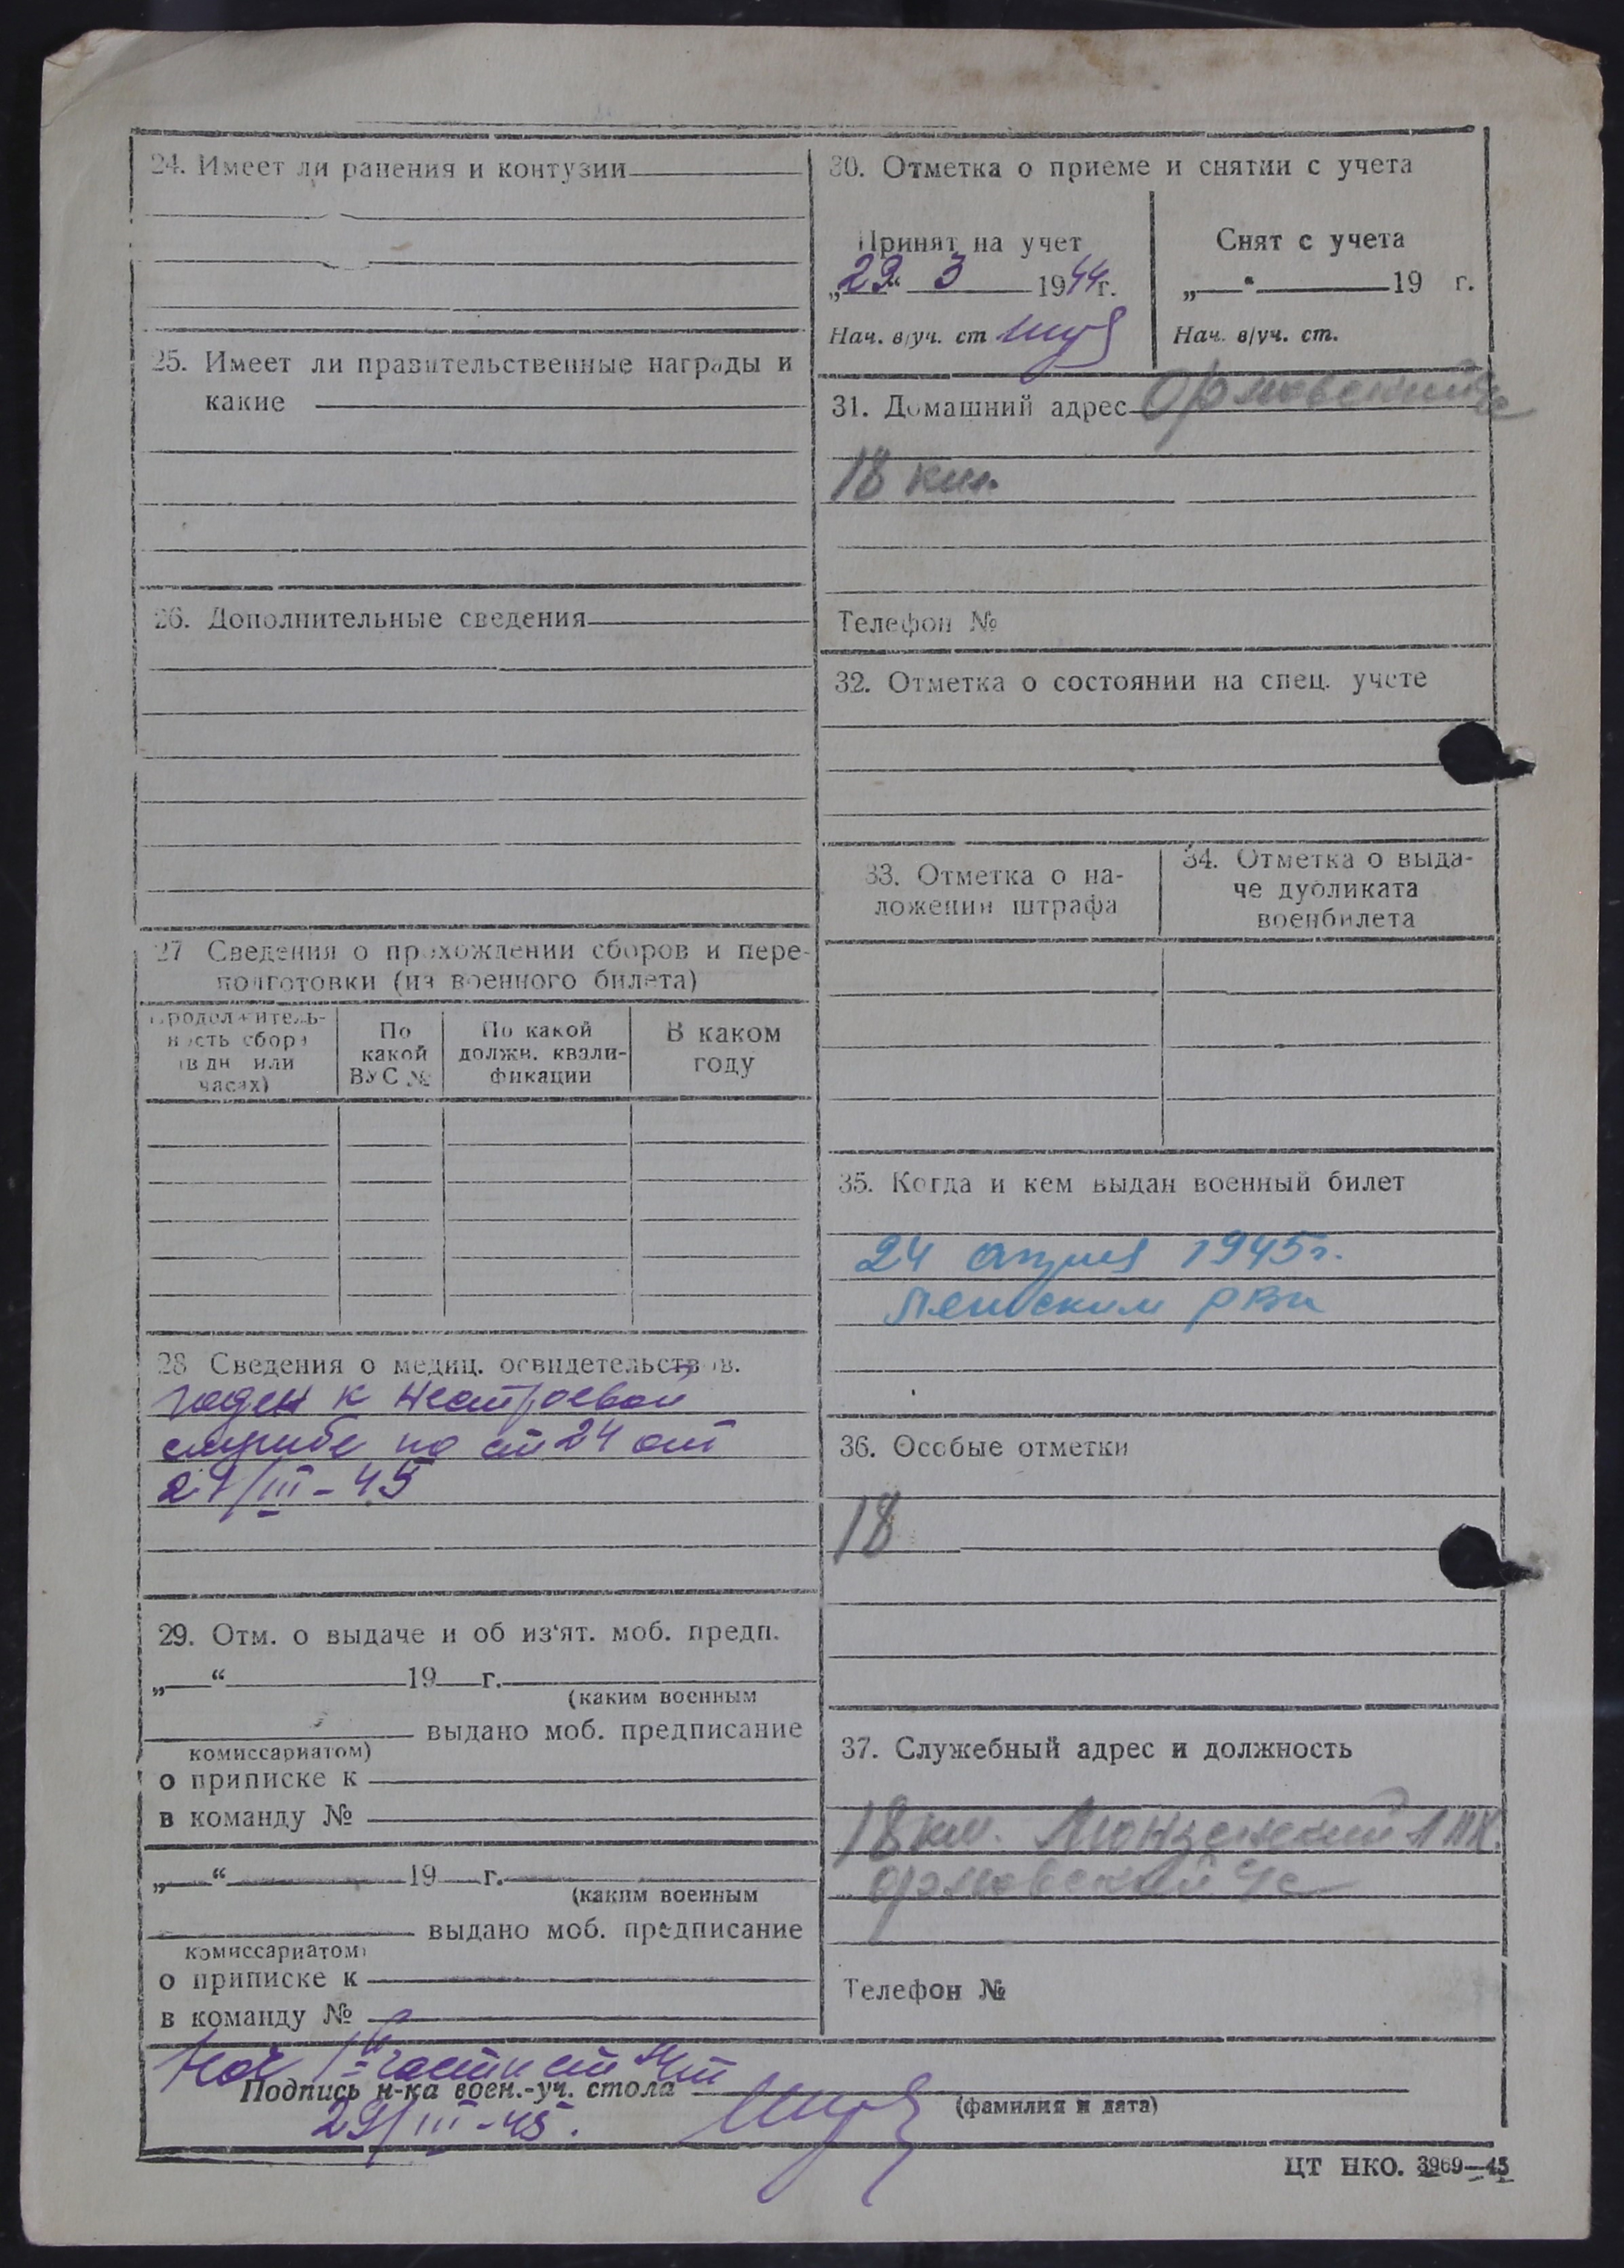 24. Имеет ли ранения и контузии
25. Имеет ли правительственные награды и
какие
26. Дополнительные сведения
27 Сведения о прохождении сборов и пере-
подготовки (из военного билета)
Продолжитель-
ность сбора
(в дн или
часах)
По
какой
ВУС №
По какой
должн. квали-
фикации
В каком
году
28 Сведения о медиц. освидетельствов.
годен к нестроевой
службе по ст 24 от
29/III-45
29. Отм. о выдаче и об из‘ят. моб. предп.
„ “ 19 г.
(каким военным
выдано моб. предписание
комиссариатом)
о приписке к
в команду №
„ “ 19 г.
(каким военным
выдано моб. предписание
комиссариатом)
о приписке к
в команду №
30. Отметка о приеме и снятии с учета
Принят на учет
„29“ 3 1944г.
Нач. в/уч. ст
Снят с учета
„ “ 19 г.
Нач. в/уч. ст.
31. Домашний адрес
18 км.
Телефон №
32. Отметка о состоянии на спец. учете
33. Отметка о на-
ложении штрафа
34. Отметка о выда-
че дубликата
военбилета
35. Когда и кем выдан военный билет
24 апреля 1945г.
Ленским РВк
36. Особые отметки
18
37. Служебный адрес и должность
18 км.
Телефон №
Нач части
Подпись н-ка воен.-уч. стола
(фамилия и дата)
29/III-45.
ЦТ НКО. 3969—45